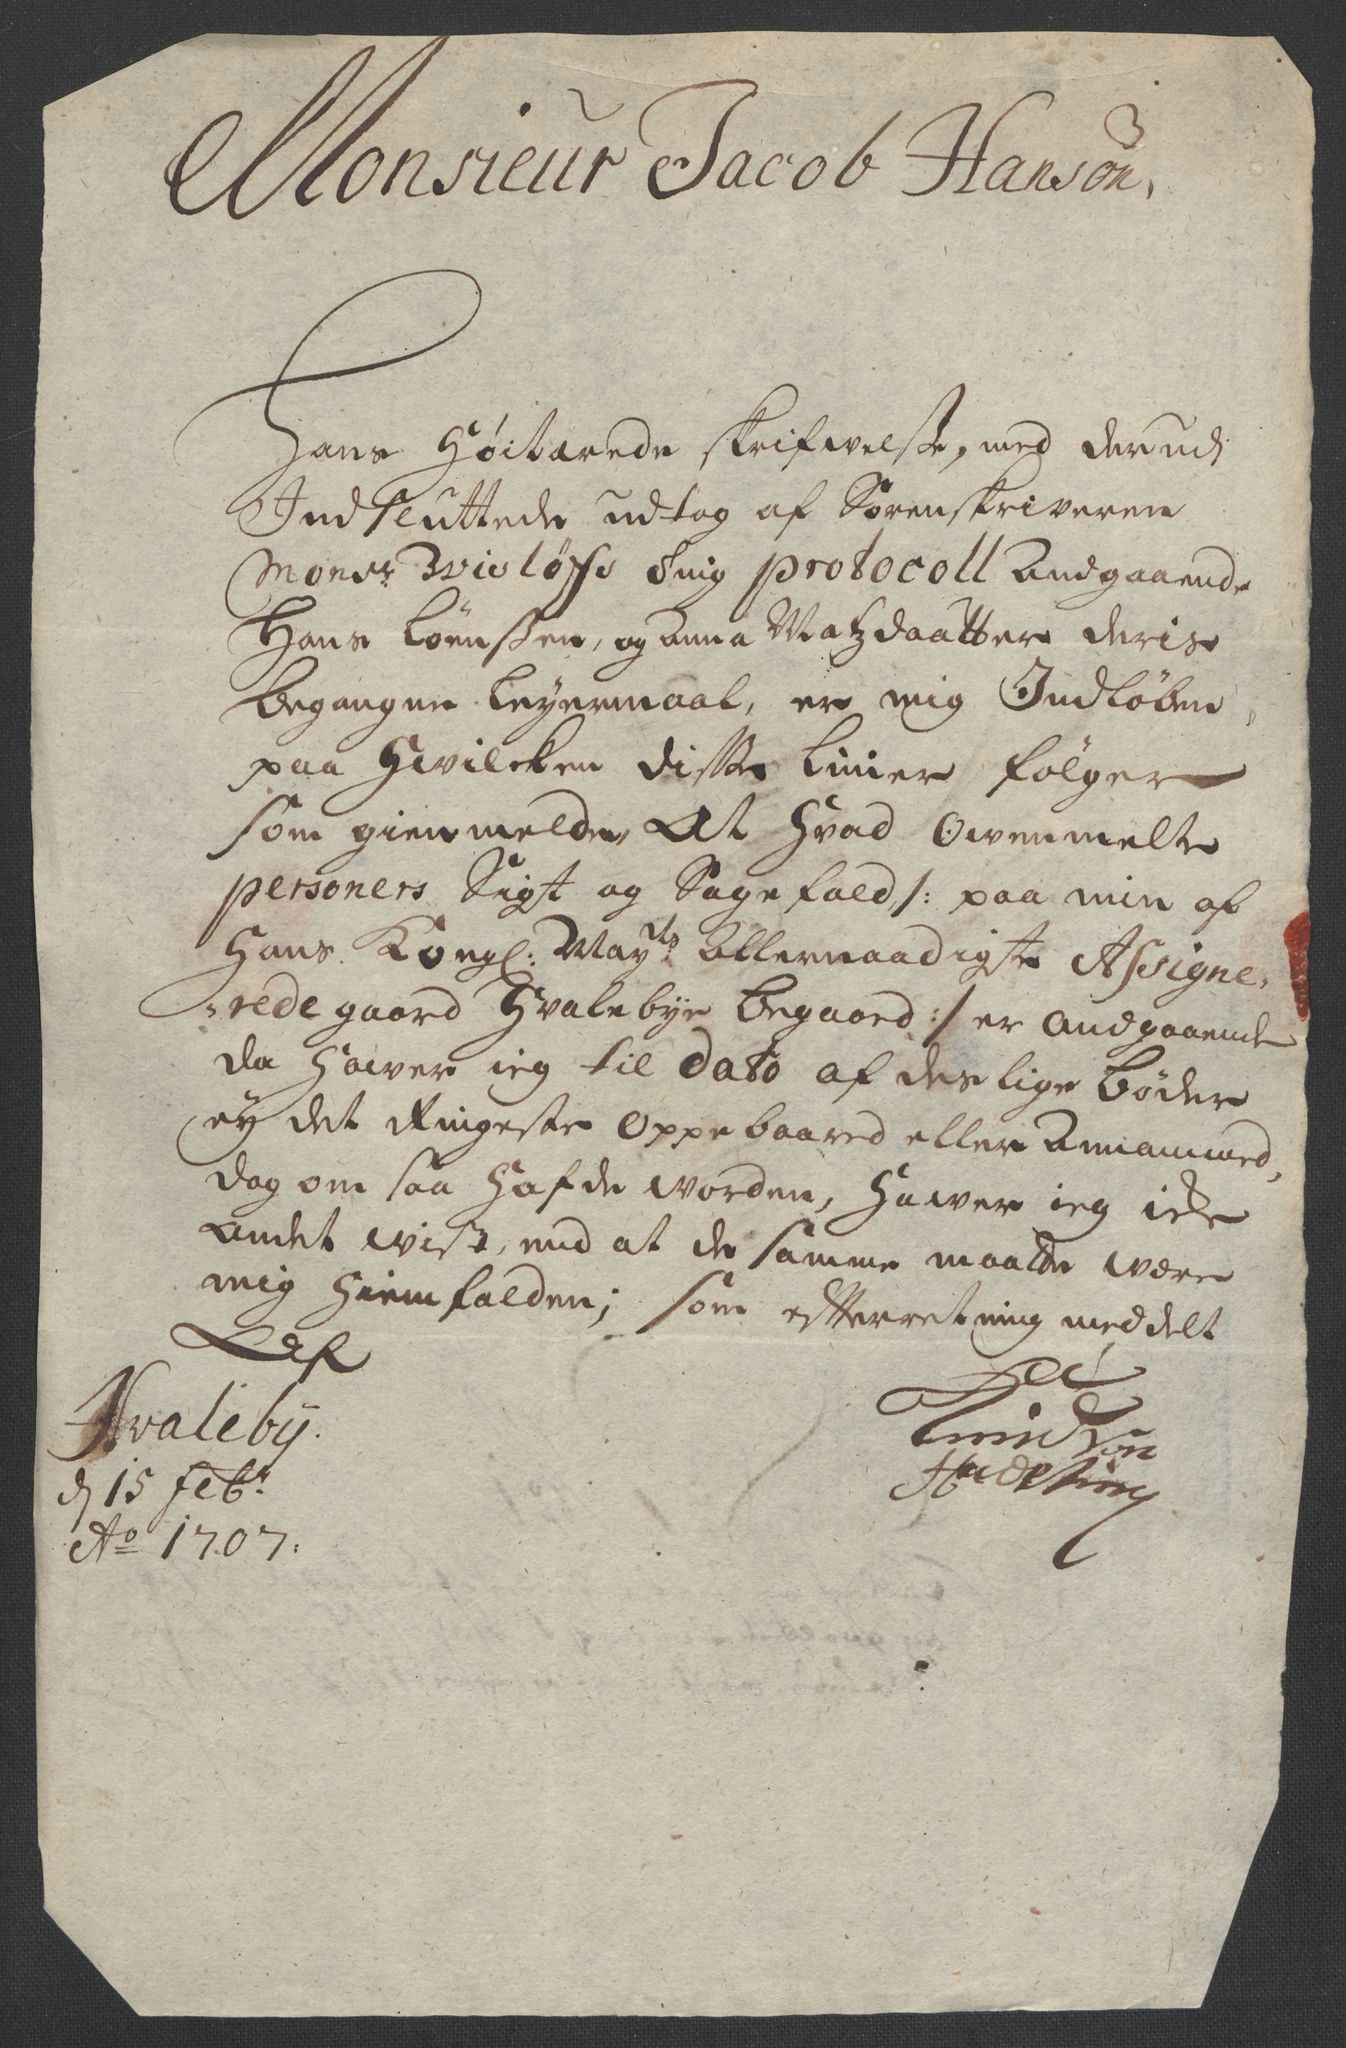 Monsieur Jacob Hanson,
Hans Höitærede skrifwelse, med derudj
Indsluttede udtog af Sorenskriveren
Monsr protocoll Andgaaende
Hans Loenssen, og Anna Matzdaatter deris
begangne Leyermaal, er mig Indløben,
paa Hvilcken disse Linier følger
som gienmelder, At Hvad Owenmelte
personers Sigt og Sagefald /: paa min af
Hans Kongl: Mayts Allernaadigste Assigne-
-rede gaard Hvalebye begaaed :/ er Andgaaende
da Hawer ieg til dato af des lige bøder
ey det Ringeste Oppebaared eller Annammed,
dog om saa Hafde worden, Hawer ieg icke
Andet wist, end at de samme maatte være
mig Hiemfalden; som efterretning meddelt
Hvaleby.
dj 15 febr:
Ao 1707.